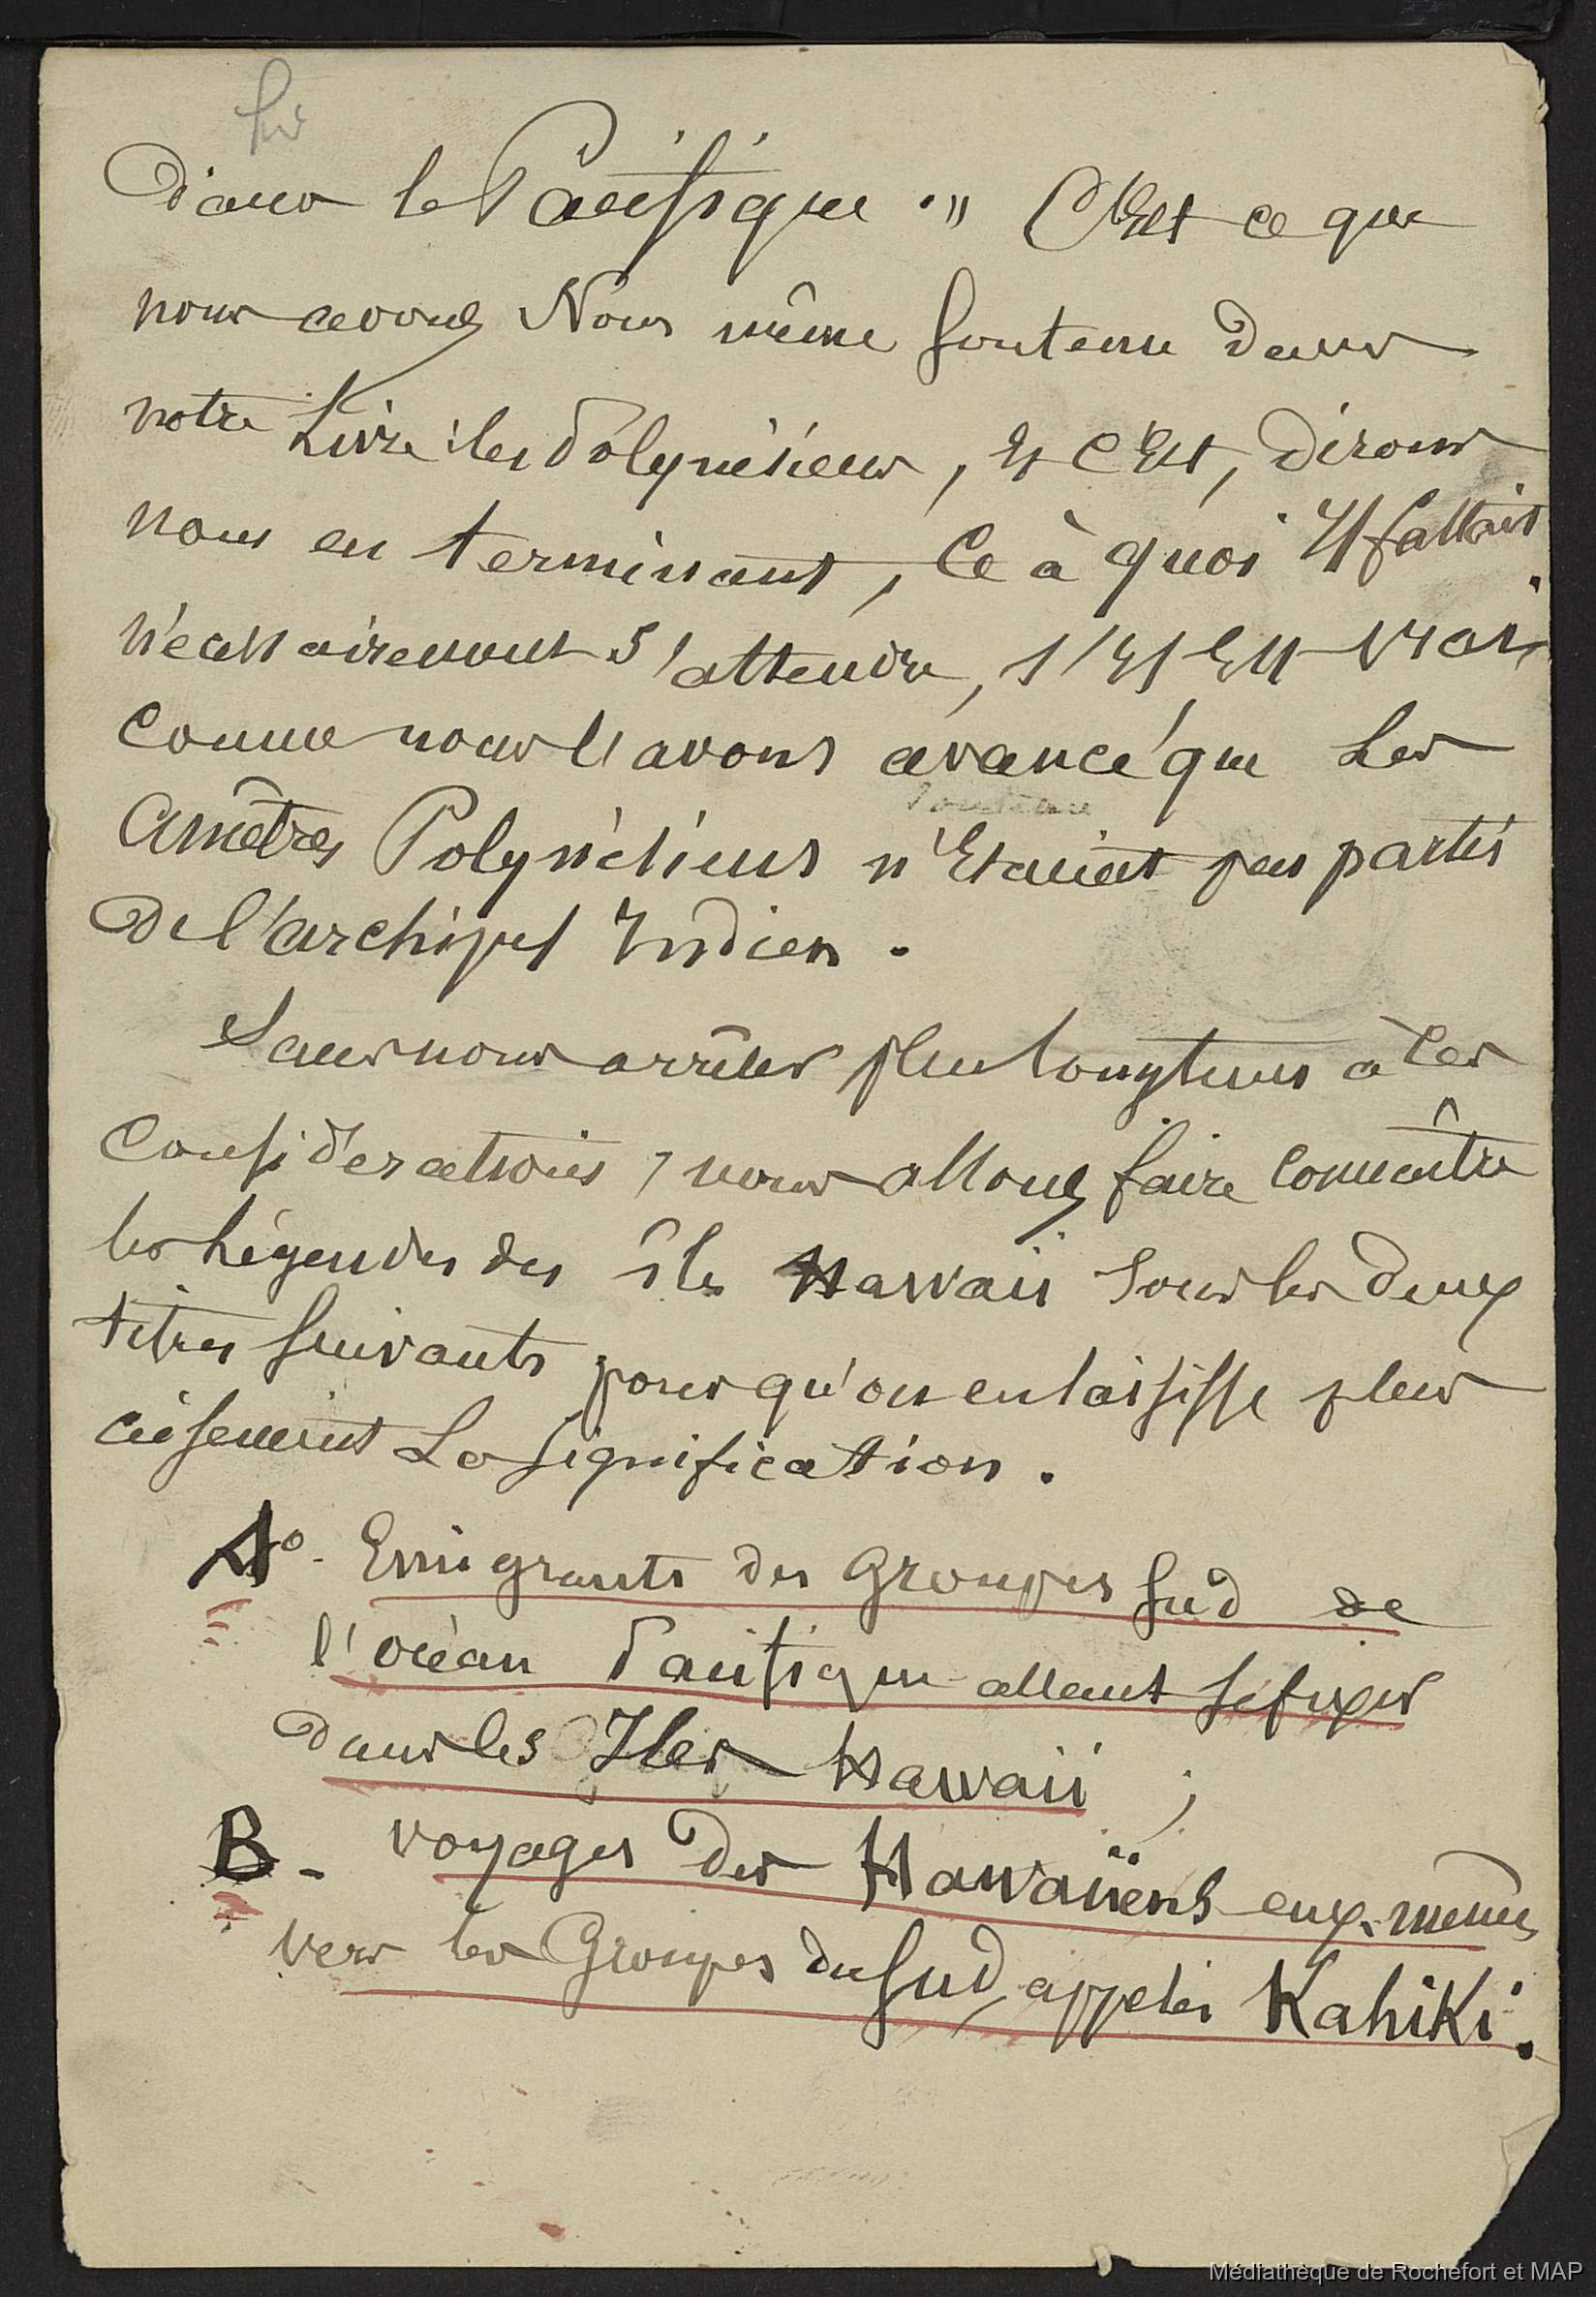 dans le Pacifique. » C'est ce que
nous avons Nous même soutenu dans
notre Livre : les Polynésiens, et c'est, dirons
nous en terminant, ce à quoi Il fallait
nécessairement s'attendre, s'il est vrai,
comme nous l'avons avancé que les
Ancêtres Polynésiens n'Etaient pas partis
de l'archipel Indien.
Sans nous arrêter plus longtems à ces
considérations, nous allons faire connaître
les Légendes des îles Hawaii sous les deux
titres suivants pour qu'on en saisisse plus
aisément La signification.
A°- Emigrants des Groupes Sud de
l'océan Pacifique allant se fixer
dans les Iles Hawaii ;
B - voyages des Hawaiiens eux-mêmes
vers les Groupes du Sud, appelés Kahiki.
Médiathèque de Rochefort et MAP